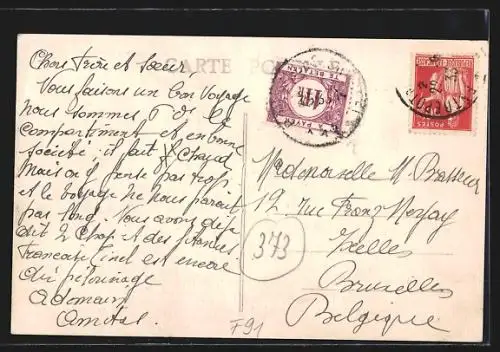 CARTE POSTALE
Chers frère et sœur
Vous faisons un bon voyage
nous sommes 8 ds le
compartiment et en bonne
société; il fait chaud
Mais on pense pas trop
et le voyage ne nous parait
pas long. Nous avons déjà
dit 2 Chap. et des
française c'est est encore
du pelerinage
A demain
Amitiés
À PAYER
TE BETALEN
POSTES
Mademoiselle M. Brasseur
12 rue Franz Merjay
Ixelles
Bruxelles
Belgique
373
F91